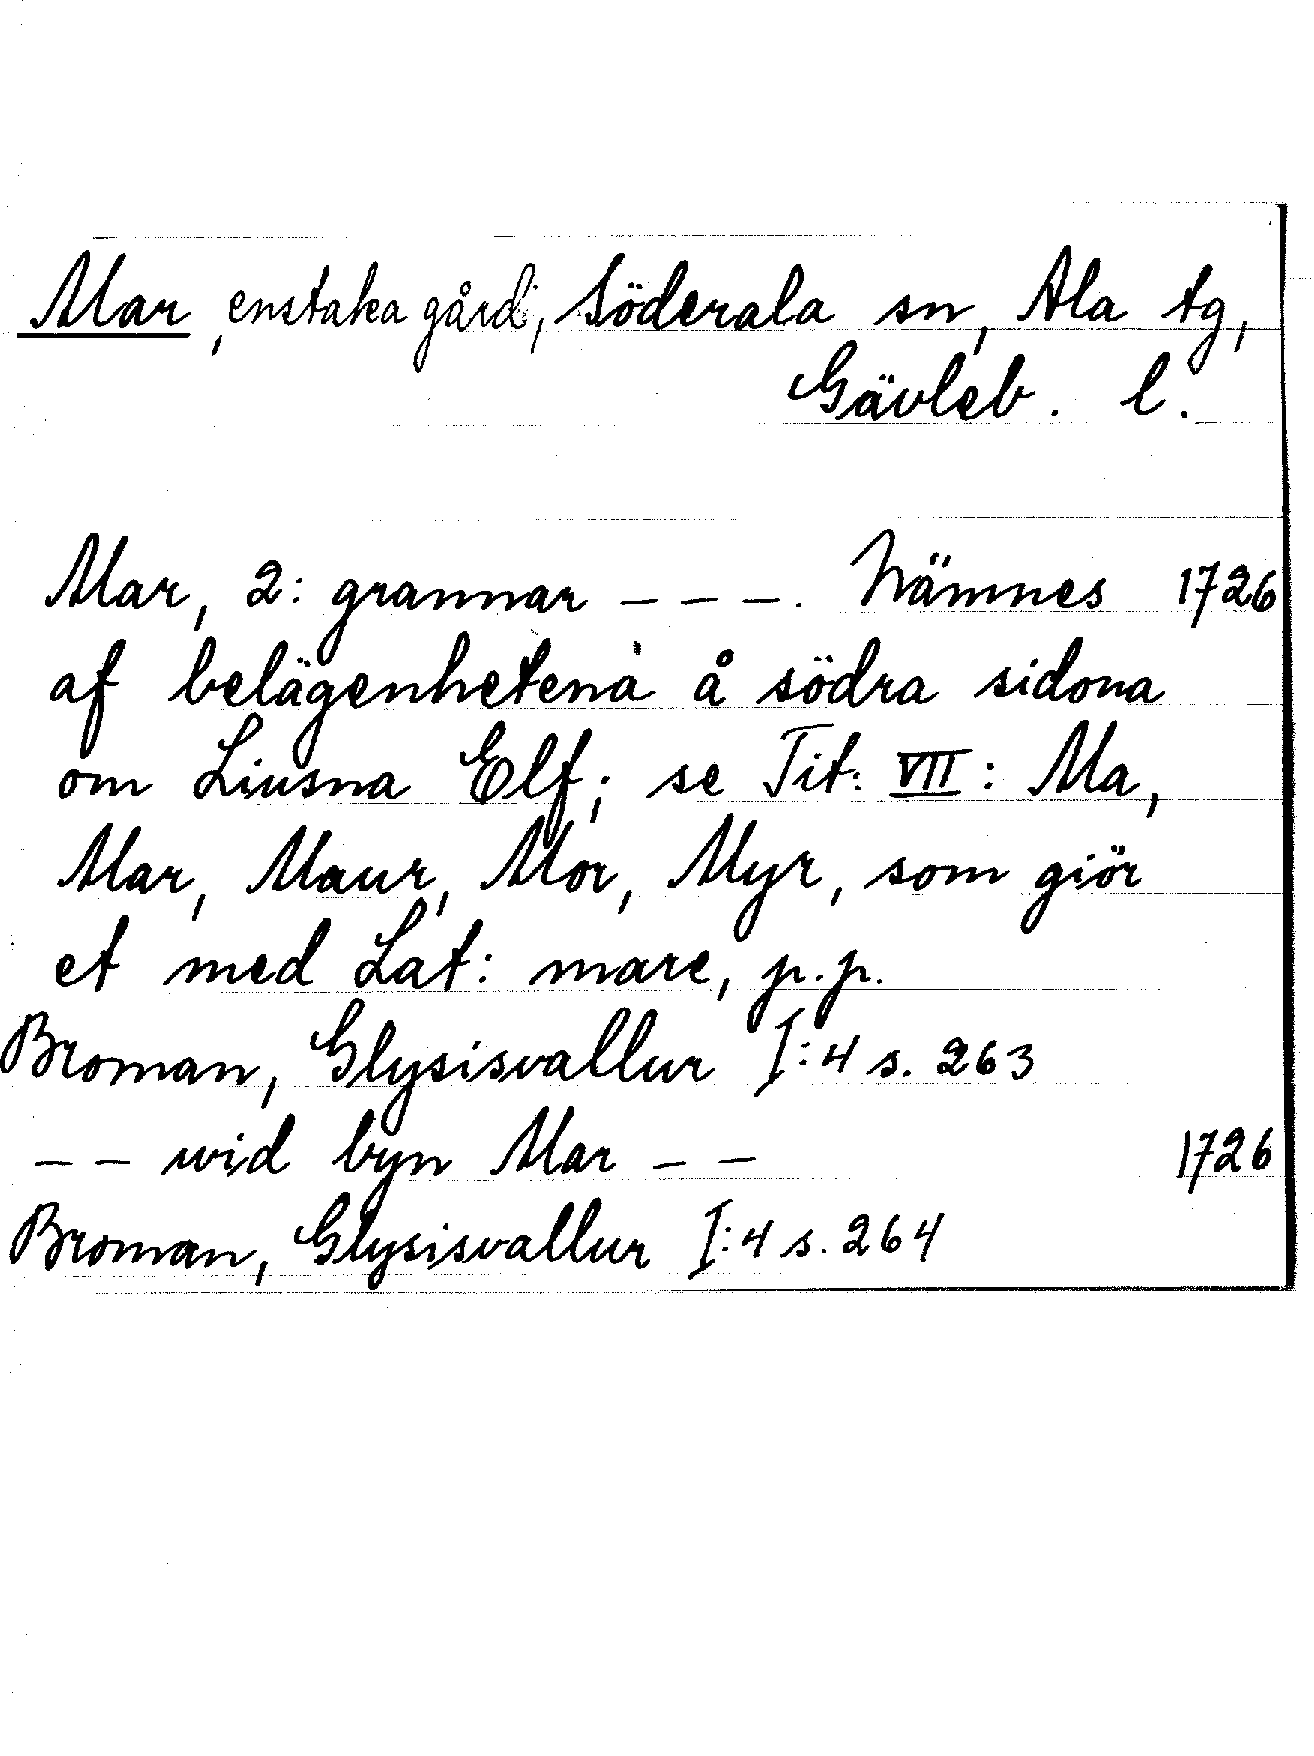 Mar, enstaka gård, Söderala sn, Ala tg,
Gävleb. l.
Mar, 2: grannar – – –. Nämnes 1726
af belägenhetena å södra sidona
om Liusna Elf; se Tit: VII: Ma,
Mar, Maur, Mor, Myr, som giör
et med Lat: mare, p.p.
Broman, Glysisvallur I:4 s. 263
– – wid byn Mar – – 1726
Broman, Glysisvallur I:4 s. 264